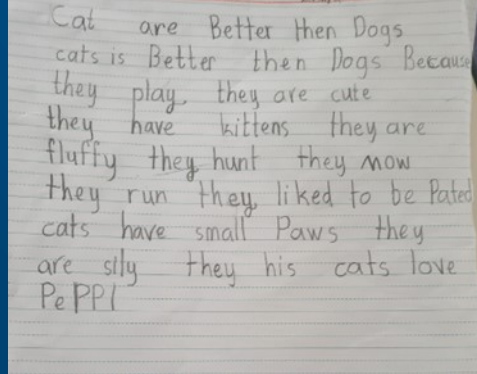 Cat are Better then Dogs
cats is Better then Dogs Because
they play they are cute
they have kittens they are
fluffy they hunt they mow
they run they liked to be Pated
cats have small Paws they
are sily they his cats love
PePPl